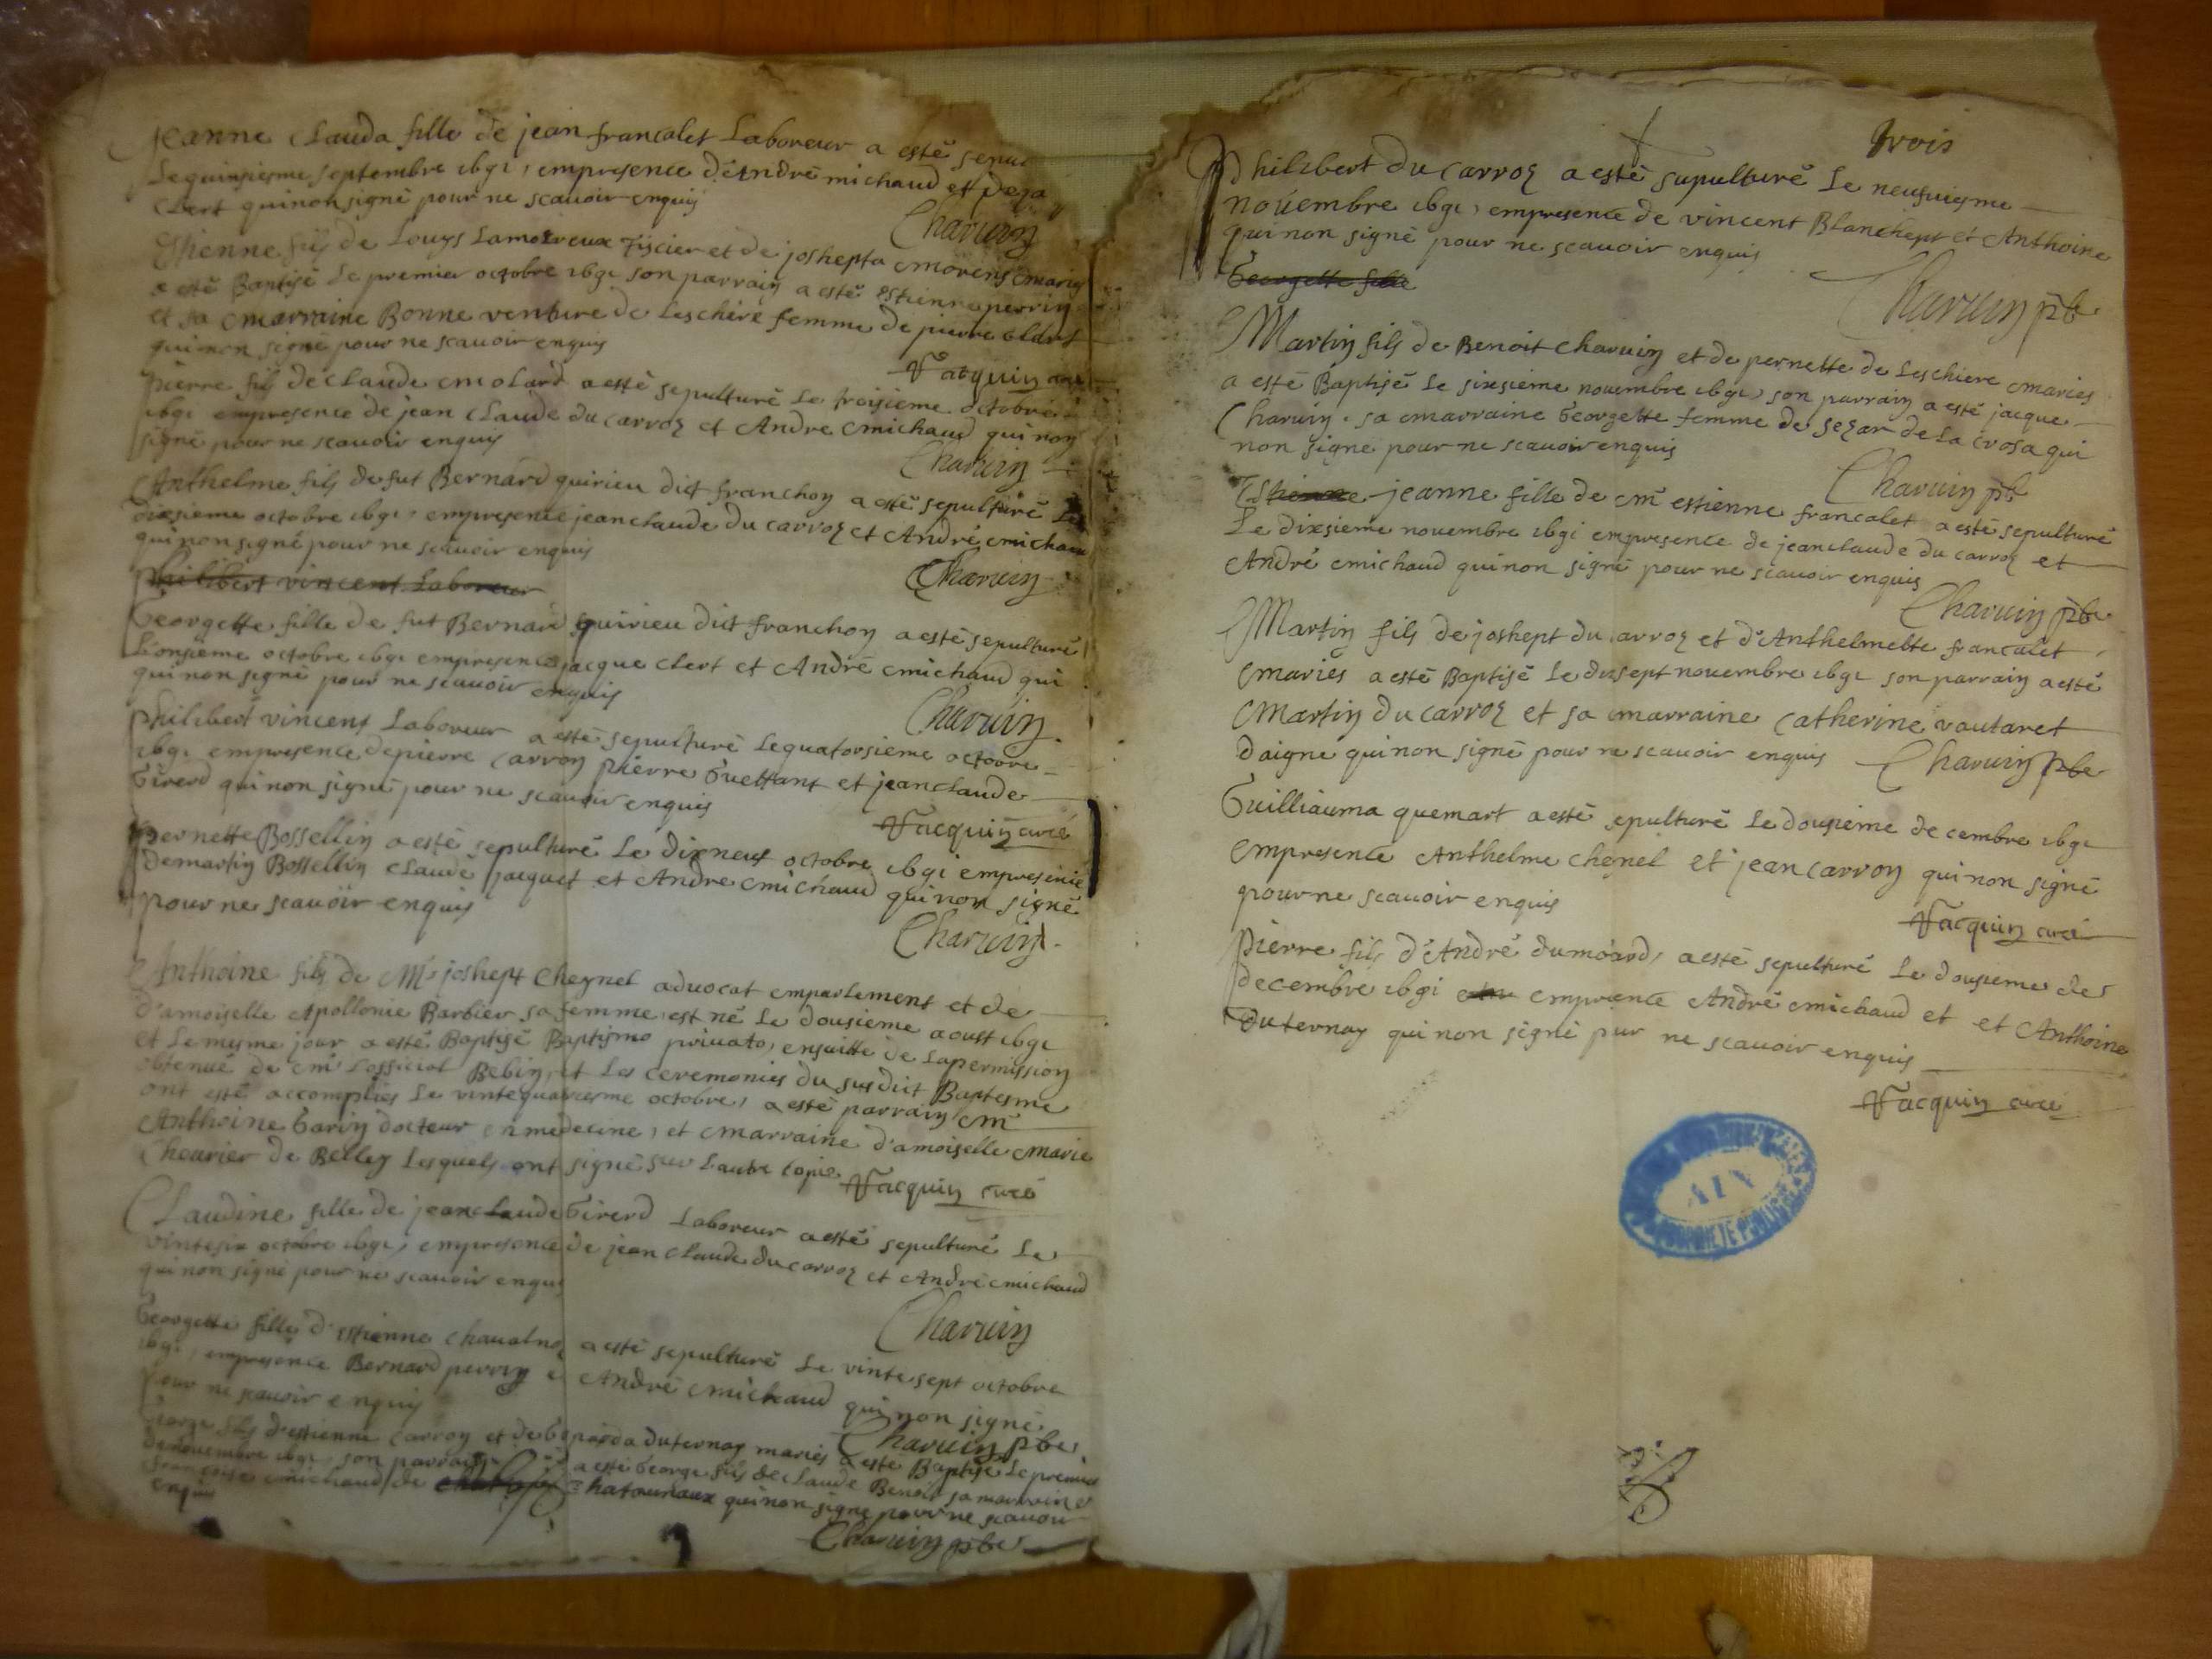 Jeanne Clauda fille de jean francalet Laboreur a esté sepul
Le quinsiesme septembre 1691, empresence d'Andre michaud et
Clert qui non signé pour ne scauoir enquis
Charuin
Estienne fils de Louys Lamoureux fiscier et de joshepta morens mariés
a esté Baptisé le premier octobre 1691 son parrain a esté estienne perrin
et sa marraine Bonne venture de Leschere femme de pierre
qui non signe pour ne scauoir enquis
Vacquin curé
pierre fils de claude molard a esté sepulturé le troisieme octobre
1691 empresence de jean Claude du carroz et Andre michaud qui non
signé pour ne scauoir enquis
Charuin
Anthelme fils de fut Bernard quirieu dict franchon a esté sepulturé le
dixsieme octobre 1691, empresence jeanclaude du carroz et André michaud
qui non signé pour ne scauoir enquis
Charuin
philibert vincent Laboreur
Georgette fille de fut Bernard quirieu dict franchon a esté sepulturé
L'onsieme octobre 1691 empresence jacque clert et André michaud qui
qui non signé pour ne scauoir enquis
Charuin
philibert vincent Laboreur a esté sepulturé Le quatorsieme octobre
1691 empresence de pierre carron pierre Gueffant et jeanclaude
Girerd qui non signé pour ne scauoir enquis
Vacquin curé
pernette Bossellin a esté sepulturé Le dixneuf octobre 1691 empresence
de martin Bossellin claude jacquet et Andre michaud qui non signé
pour ne scauoir enquis
Charuin
Anthoine fils de Mr joshept Cheynel aduocat emparlement et de
d'amoiselle Apollonie Barbier sa femme est né Le dousieme aoust 1691
et Le mesme jour a esté Baptisé Baptismo priuato, ensuitte de La permission
obtenué de mr L'official Bebin, et Les ceremonies du susdict Baptesme
ont esté accomplies Le vintequatriesme octobre, a esté parrain mr
Anthoine Garin docteur en medecine, et marraine d'amoiselle marie
Cheurier de Belley Lesquels ont signé sur L'autre copie Vacquin curé
Claudine fille de jeanclaude Girerd Laboreur a esté sepulturé Le
vintesix octobre 1691, empresence de jean Claude du carroz et André michaud
qui non signé pour ne scauoir enquis
Charuin
Georgette fille d'estienne chaualnoz a esté sepulturé Le vintesept octobre
1691, empresence Bernard perrin et André michaud qui non signé
pour ne scauoir enquis
Charuin pbr
George fils d'estienne carron et de duternay mariés a esté Baptisé Le premier
de nouembre 1691 son parrain a esté George fils de claude Benoit sa marraine
francoise michaud de chatounaux qui non signe pour ne scauoir
enquis
Charuin pbr
trois
Philibert du carroz a esté sepulturé Le neufuiesme
nouembre 1691, empresence de vincent Blanchept et Anthoine
qui non signé pour ne scauoir enquis
Charuin pbr
Georgette fille
Martin fils de Benoit charuin et de pernette de Leschiere mariés
a esté Baptisé Le sixsieme nouembre 1691, son parrain a esté jacque
Charuin, sa marraine Georgette femme de sezar de la crosa qui
non signe pour ne scauoir enquis
Charuin pbr
Estienne jeanne fille de mr estienne francalet a esté sepulturé
Le dixsieme nouembre 1691 empresence de jeanclaude du carroz et
André michaud qui non signé pour ne scauoir enquis
Charuin pbr
Martin fils de joshept du carroz et d'Anthelmette francalet
mariés a esté Baptisé Le dixsept nouembre 1691 son parrain a esté
Martin du carroz et sa marraine Catherine vautaret
daigne qui non signé pour ne scauoir enquis Charuin pbr
Guilliauma quemart a esté sepulturé Le dousieme decembre 1691
empresence Anthelme chenel et jean carron qui non signé
pour ne scauoir enquis
Vacquin curé
pierre fils d'André dumoard, a esté sepulturé Le dousieme de
decembre 1691 empresence André michaud et et Anthoine
duternay qui non signé pur ne scauoir enquis
Vacquin curé
AIN
PROPRIETE PUBLIQUE